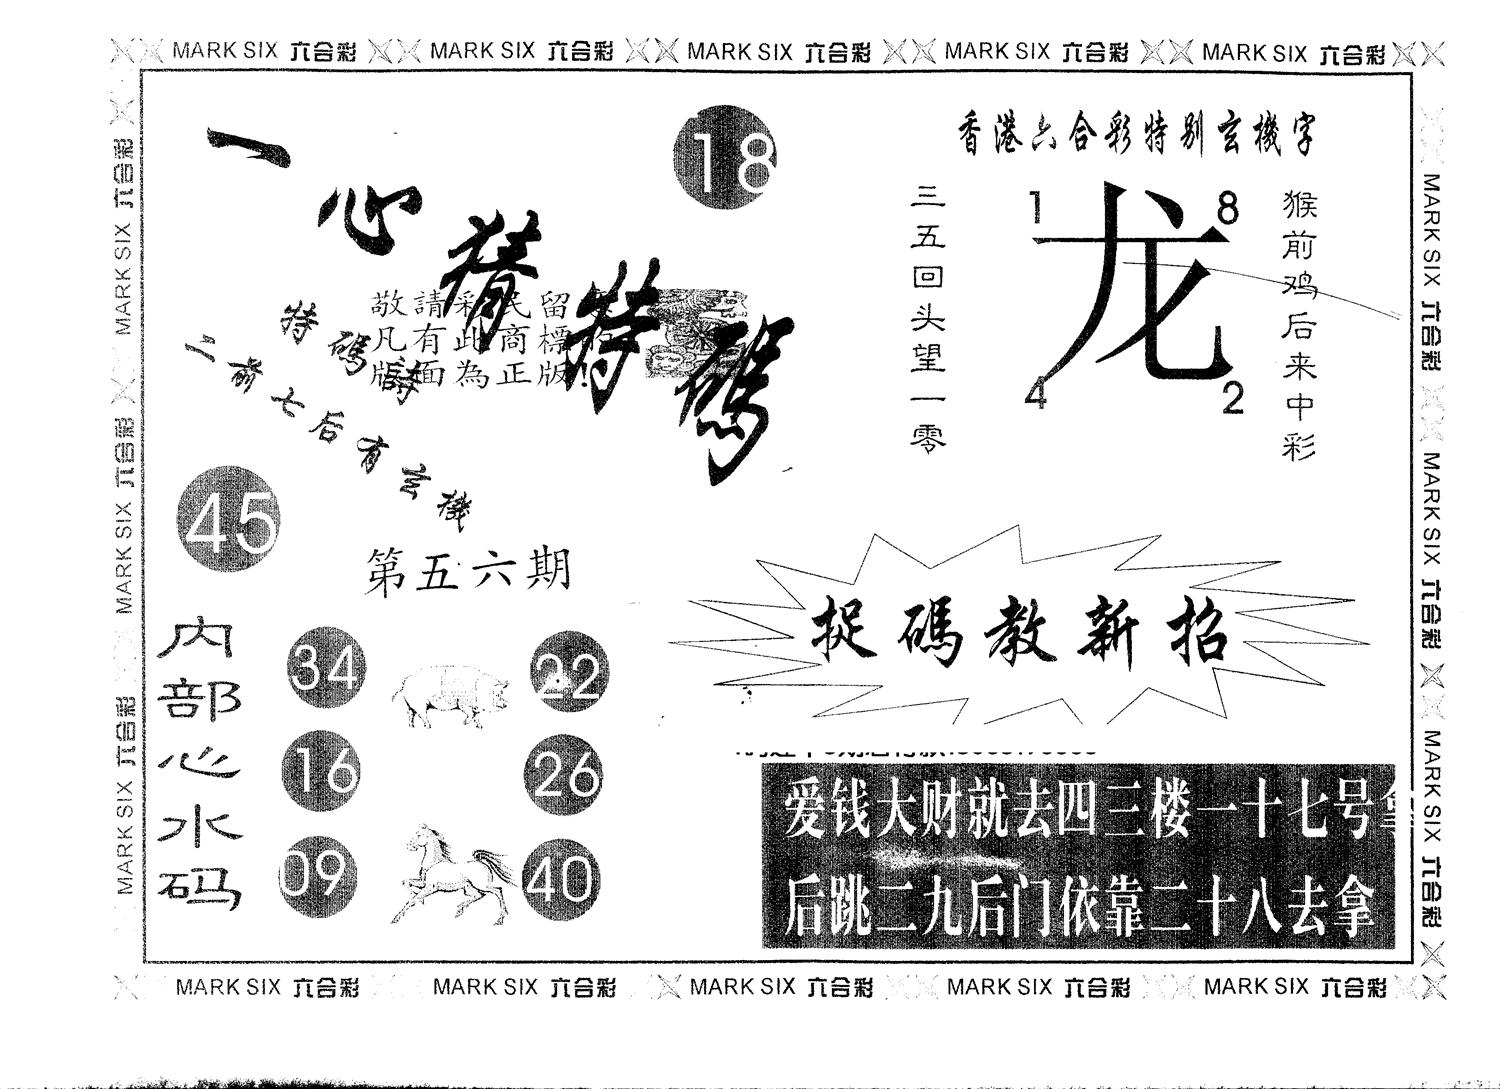 MARK SIX 六合彩 MARK SIX 六合彩 MARK SIX 六合彩 MARK SIX 六合彩 MARK SIX 六合彩
MARK SIX 六合彩 MARK SIX 六合彩 MARK SIX 六合彩
一心猜特碼
18
敬請彩民留
凡有此商標
版面為正版!
特碼詩
二前七后有玄機
45
第五六期
香港六合彩特别玄機字
三五回头望一零
1 8
龙
4 2
猴前鸡后来中彩
捉碼教新招
内部心水码
34 22
16 26
09 40
爱钱大财就去四三楼一十七号拿
后跳二九后门依靠二十八去拿
MARK SIX 六合彩 MARK SIX 六合彩 MARK SIX 六合彩
MARK SIX 六合彩 MARK SIX 六合彩 MARK SIX 六合彩 MARK SIX 六合彩 MARK SIX 六合彩